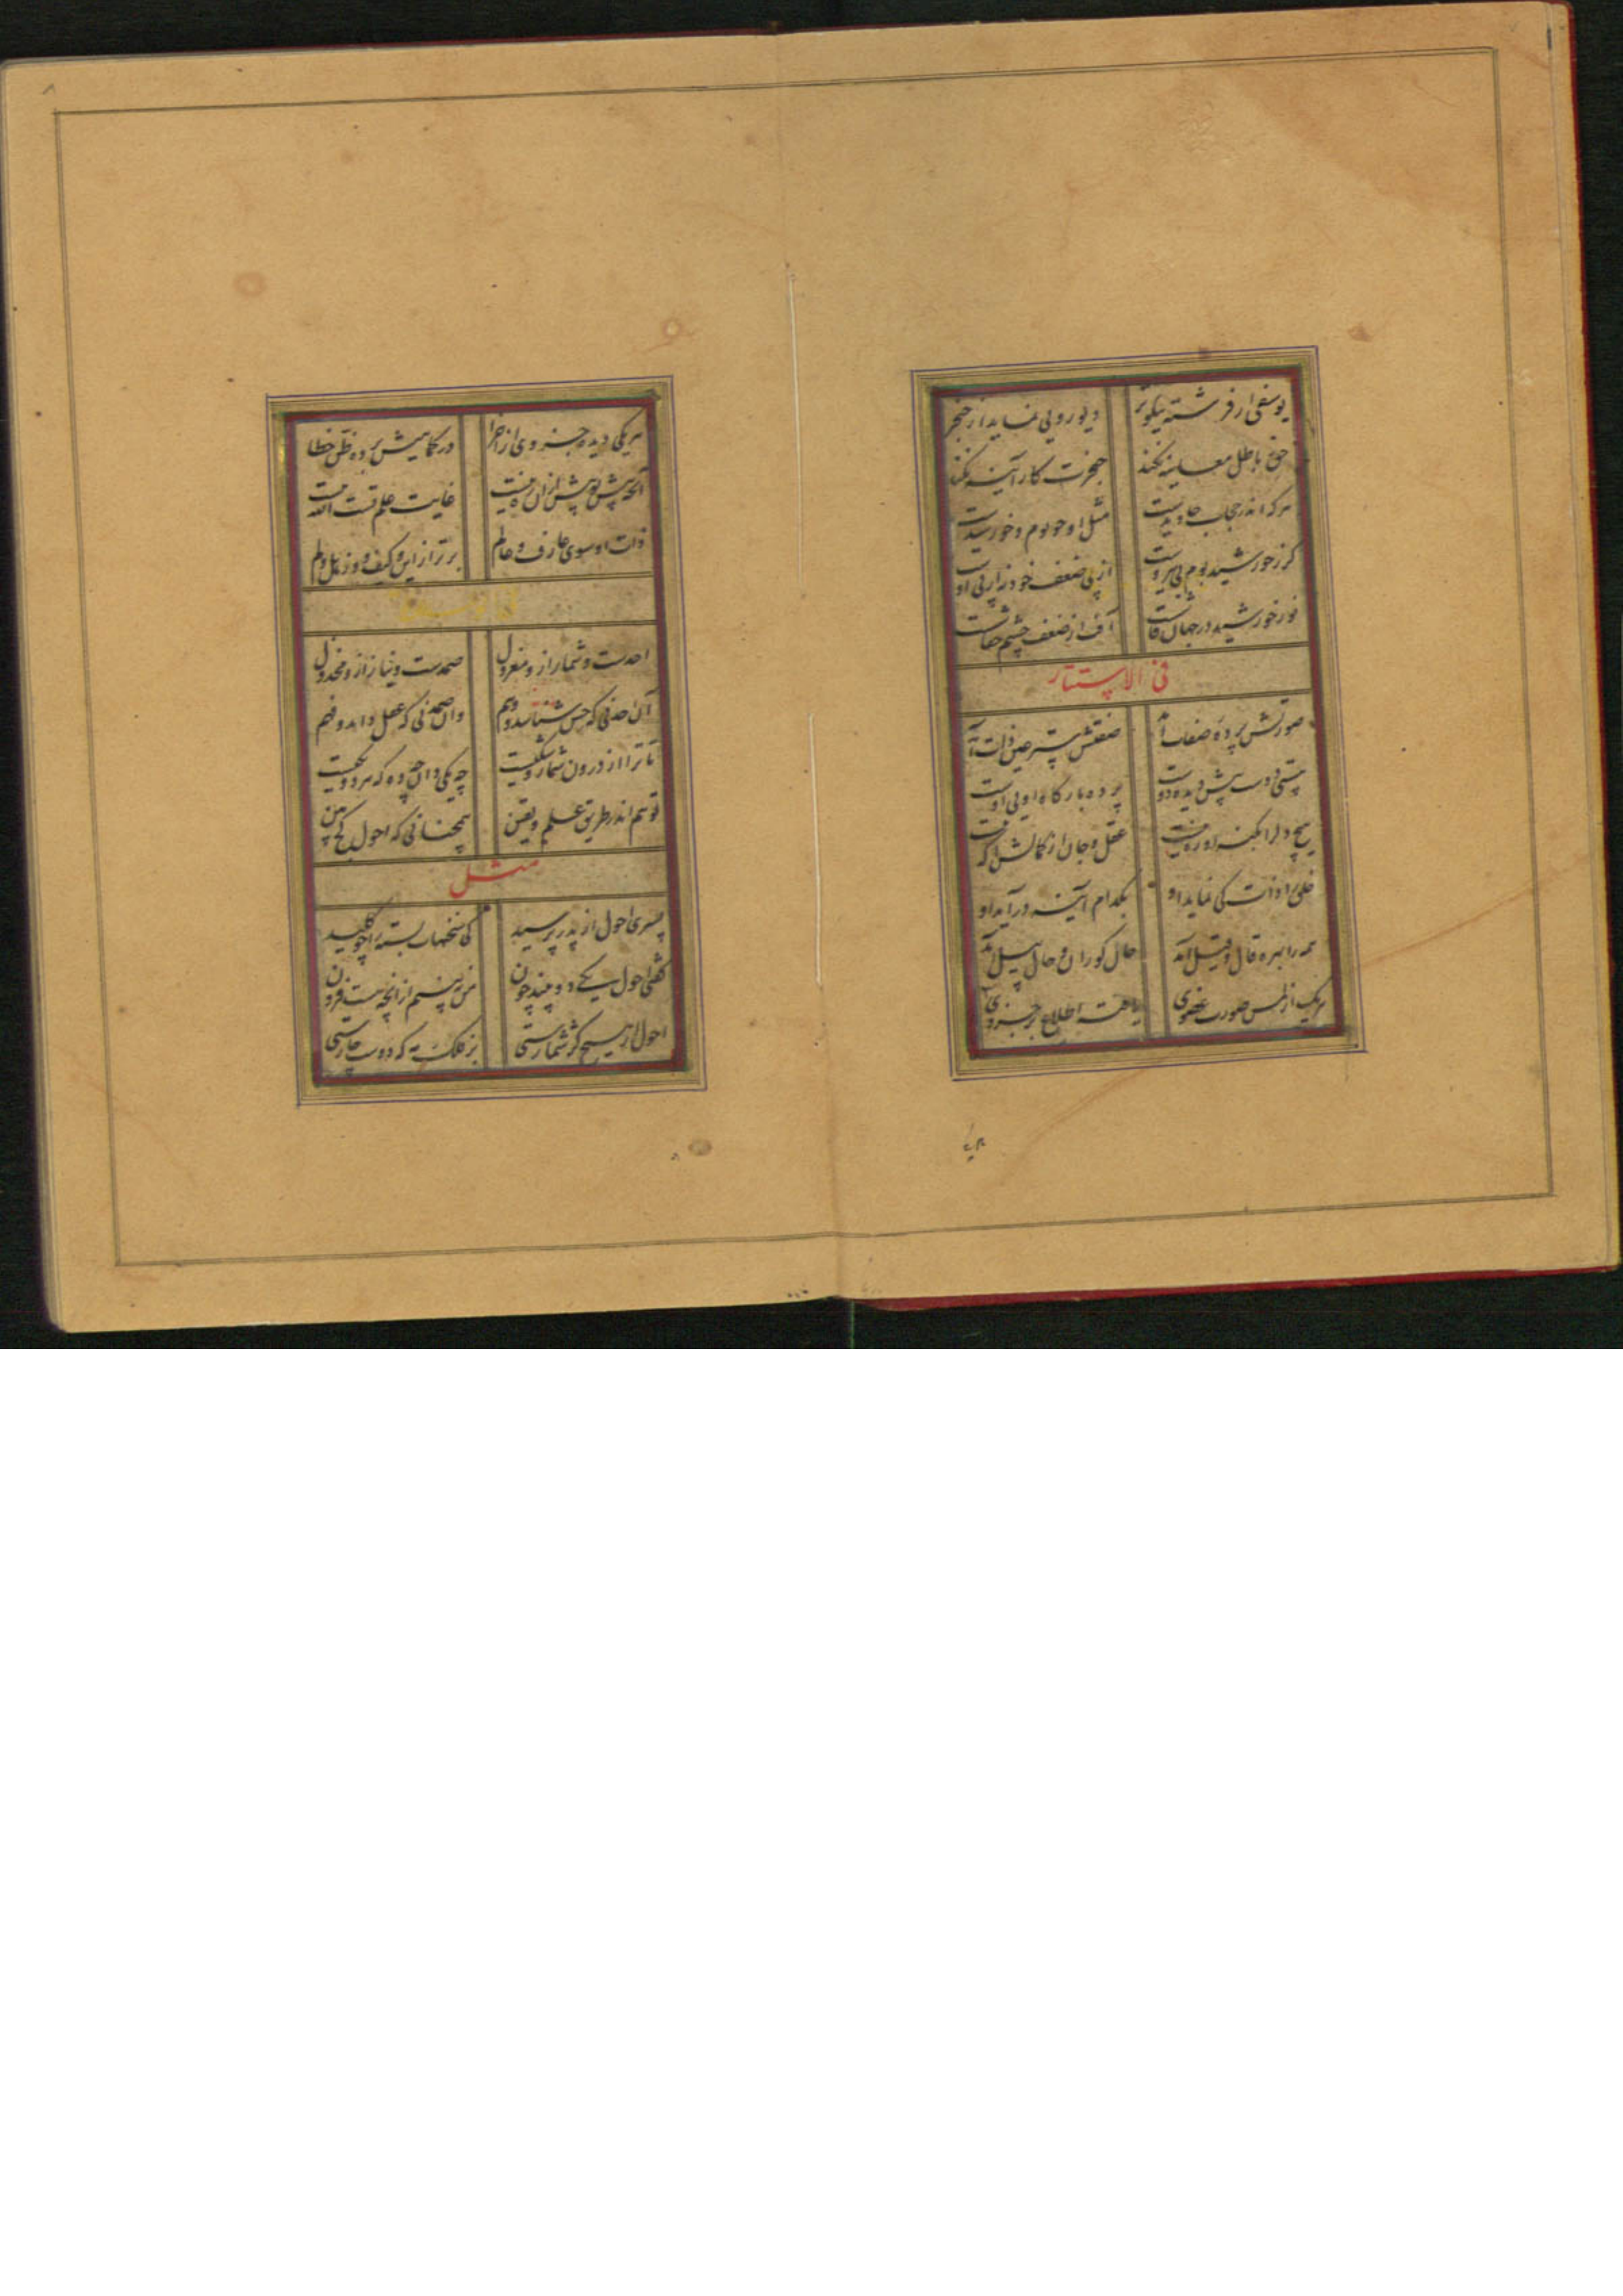 یوسفی از فرشته نیکوتر دیو رویی نماید از خنجر
حق ز باطل معاینه نکند خنجرت کار آینه نکند
هر که اندر حجاب جاویدست مثل او چو بوم و خورشیدست
گر ز خورشید بوم بی نیروست از پی ضعف خود نه از پی اوست
نور خورشید در جهان فاشست آفت از ضعف چشم خفاشست
فی الاستتار
صورتش پرده صفات آمد صفتش ستر عین ذات آمد
هستی دوست پیش دیده دوست پرده بارگاه اویی اوست
هیچ دل را بکنه او ره نیست عقل و جان از کمالش آگه نیست
خلق را ذات کی نماید او بکدام آینه درآید او
همه را بهره قال و قیل آمد حال کوران و حال پیل آمد
هر یک از لمس صورت عضوی یافته اطلاع بر جزوی
هر یکی
هر یکی دیده جزوی از اجزا در کمالیش برده ظن خطا
آنچه پیش تو پیش ازان ره نیست غایت علم تست الله نیست
ذات او سوی عارف و عالم برتر از این و کیف وز هل و لم
احدست و شمار ازو معزول صمدست و نیاز ازو مخذول
آن احد نی که حس شناسد و وهم وان صمد نی که عقل داند و فهم
تا ترا از درون شمار و شکیست چه یکی دان چه دو که هر دو یکیست
تو هم اندر طریق علم و یقین همچنانی که احول کج بین
مثل
پسری احول از پدر پرسید کی سخنهات بسته را چو کلید
گفتی احول یکی دو بیند چون من نبینم ازانچه هست فزون
احول ار هیچ کژ شمارستی بر فلک مه که دوست چارستی